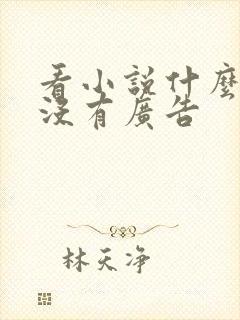 看小說什麼
沒有廣告
林天净